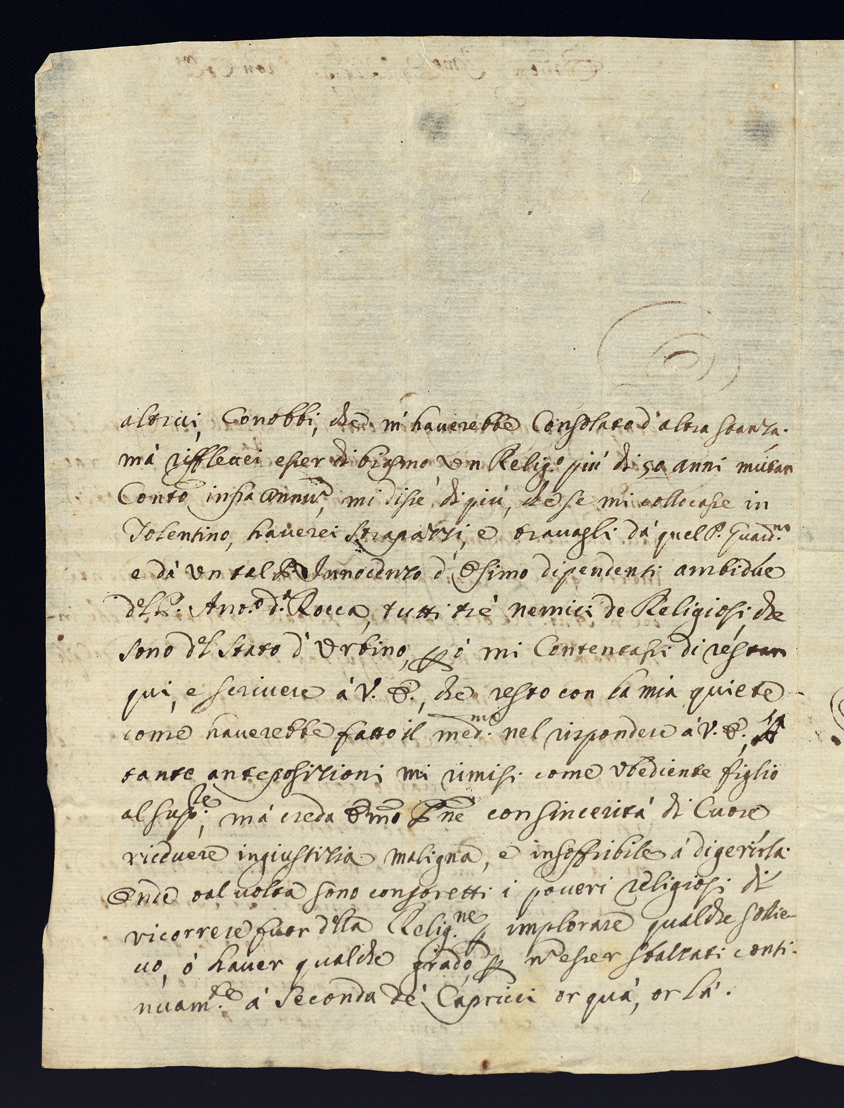 altrui, Conobbi, che m'hauerebbe Consolato d'altra stanza.
má riflettei esser di biasmo un Relig.º piú di 50 anni mutar
Contº infra annum, mi disse di piú, che se mi collocasse in
Tolentino, hauerei strapazzi, e trauagli dá quel P. Guard.no
e dá un tal P. Innocenzo d'Esimo dipendenti ambidue
dl P. Ant.º dª Rocca, tutti tré nemici de Religiosi, che
sono dl stato d'Urbino, ó mi Contentassi di restar
qui, e scriuere á V. E., che resto con la mia quiete
come hauerebbe fatto il med.mo nel rispondere á V. E.,
tante anteposizioni mi rimisi come ubediente figlio
al sup.re, má creda Emo Pne con sincerità di Cuore
riceuere ingiustizia maligna, e insoffribile á digerirla.
Onde tal uolta sono constretti i poueri religiosi di
ricorrere fuor dlla Relig.ne p implorare qualche sollie-
uo, ó hauer qualche grado, p nº esser sbalzati conti-
nuam.te á seconda dé Capricci or quá, or lá.